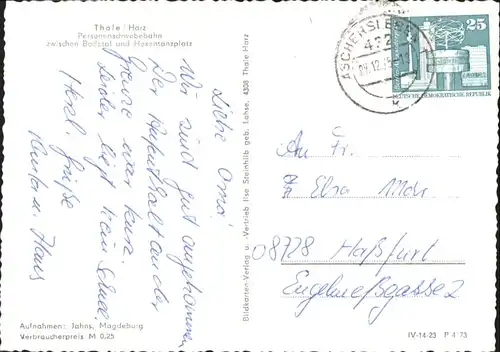 Thale / Harz
Personenschwebebahn
zwischen Bodetal und Hexentanzplatz
Liebe Oma!
Wir sind gut angekommen
Der Aufenthalt an der
Grenze war kurz.
Leider liegt kein Schnee.
Herzl. Grüße
u. Hans
Aufnahmen: Jahns, Magdeburg
Verbraucherpreis M 0,25
Bildkarten-Verlag u. Vertrieb Ilse Steinhilb geb. Lohse, 4308 Thale Harz
ASCHERSLEBEN
25
DEUTSCHE DEMOKRATISCHE REPUBLIK
An Fr.
Elsa
08728 Haßfurt
Engelmeßgasse 2
IV-14-23 P 4/73